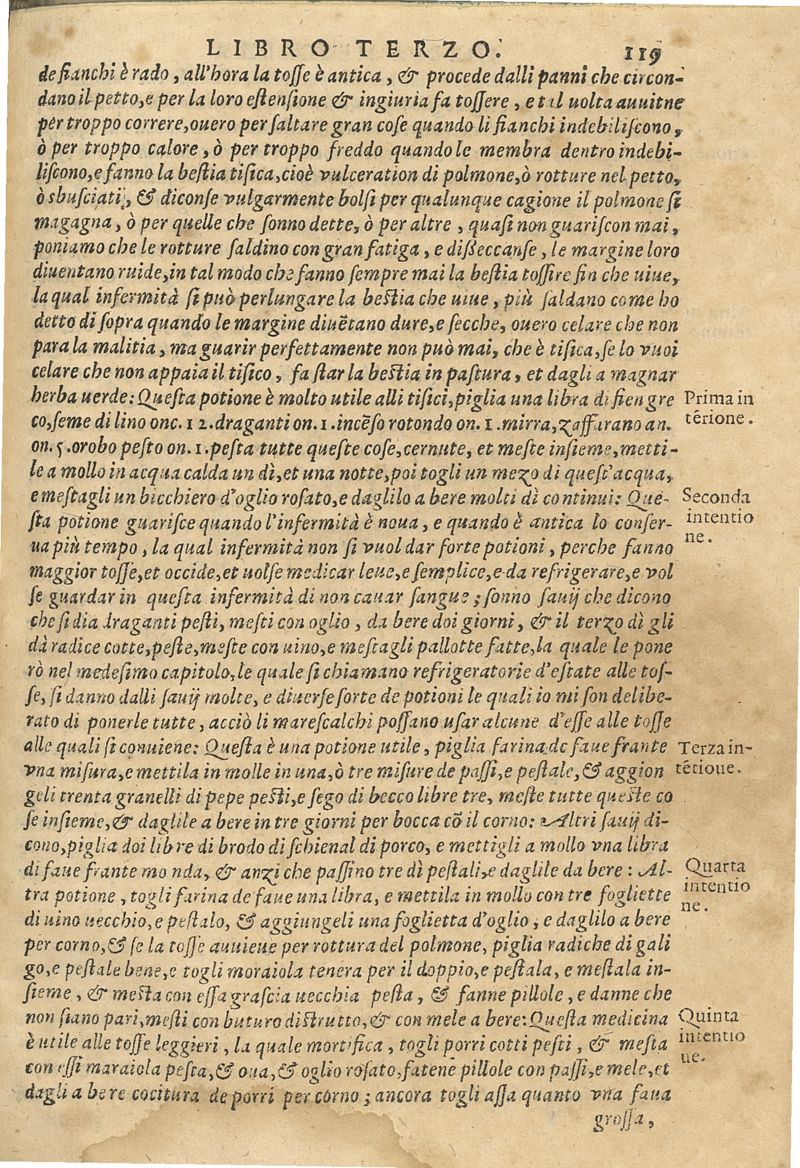 LIBRO TERZO. 119
de fianchi è rado, all'hora la tosse è antica, & procede dalli panni che circon-
dano il petto, e per la loro estensione & ingiuria fa tossere, et il uolta auuitne
per troppo correre, ouero per saltare gran cose quando li fianchi indebiliscono,
ò per troppo calore, ò per troppo freddo quando le membra dentro indebi-
liscono, e fanno la bestia tisica, cioè vulceration di polmone, ò rotture nel petto,
ò sbusciati, & diconse vulgarmente bolsi per qualunque cagione il polmone si
magagna, ò per quelle che sonno dette, ò per altre, quasi non guariscon mai,
poniamo che le rotture saldino con gran fatiga, e disseccanse, le margine loro
diuentano ruide, in tal modo che fanno sempre mai la bestia tossire fin che uiue,
la qual infermità si può perlungare la bestia che uiue, più saldano come ho
detto di sopra quando le margine diuẽtano dure, e secche, ouero celare che non
para la malitia, ma guarir perfettamente non può mai, che è tisica, se lo vuoi
celare che non appaia il tisico, fa star la bestia in pastura, et dagli a magnar
herba uerde: Questa potione è molto utile alli tisici, piglia una libra di fien gre
co, seme di lino onc. 12. draganti on. 1. incẽso rotondo on. 1. mirra, zaffarano an.
on. 5. orobo pesto on. 1. pesta tutte queste cose, cernute, et meste insieme, metti-
le a mollo in acqua calda un dì, et una notte, poi togli un mezo di quest'acqua,
e mestagli un bicchiero d'oglio rosato, e daglilo a bere molti dì continui: Que-
sta potione guarisce quando l'infermità è noua, e quando è antica lo conser-
ua più tempo, la qual infermità non si vuol dar forte potioni, perche fanno
maggior tosse, et occide, et uolse medicar leue, e semplice, e da refrigerare, e vol
se guardar in questa infermità di non cauar sangue; sonno sauij che dicono
che si dia draganti pesti, mesti con oglio, da bere doi giorni, & il terzo dì gli
dà radice cotte, peste, meste con uino, e mescagli pallotte fatte, la quale le pone
rò nel medesimo capitolo, le quale si chiamano refrigeratorie d'estate alle tos-
se, si danno dalli sauij molte, e diuerse sorte de potioni le quali io mi son delibe-
rato di ponerle tutte, acciò li marescalchi possano usar alcune d'esse alle tosse
alle quali si conuiene: Questa è una potione utile, piglia farina de faue frante
vna misura, e mettila in molle in una, ò tre misure de passi, e pestale, & aggion
geli trenta granelli di pepe pesti, e sego di becco libre tre, meste tutte queste co
se insieme, & daglile a bere in tre giorni per bocca cõ il corno: Altri sauij di-
cono, piglia doi libre di brodo di schienal di porco, e mettigli a mollo vna libra
di faue frante monda, & anzi che passino tre dì pestali, e daglile da bere: Al-
tra potione, togli farina de faue una libra, e mettila in mollo con tre fogliette
di uino uecchio, e pestalo, & aggiungeli una foglietta d'oglio, e daglilo a bere
per corno, & se la tosse auuieue per rottura del polmone, piglia radiche di gali
go, e pestale bene, e togli moraiola tenera per il doppio, e pestala, e mestala in-
sieme, & mesta con essa grascia uecchia pesta, & fanne pillole, e danne che
non siano pari, mesti con buturo distrutto, & con mele a bere: Questa medicina
è utile alle tosse leggieri, la quale mortifica, togli porri cotti pesti, & mesta
con essi maraiola pesta, & oua, & oglio rosato, fatene pillole con passi, e mele, et
dagli a bere cocitura de porri per corno; ancora togli assa quanto vna faua
grossa,
Prima in
tẽrione.
Seconda
intentio
ne.
Terza in-
tẽtioue.
Quarta
intentio
ne.
Quinta
intentio
ue.